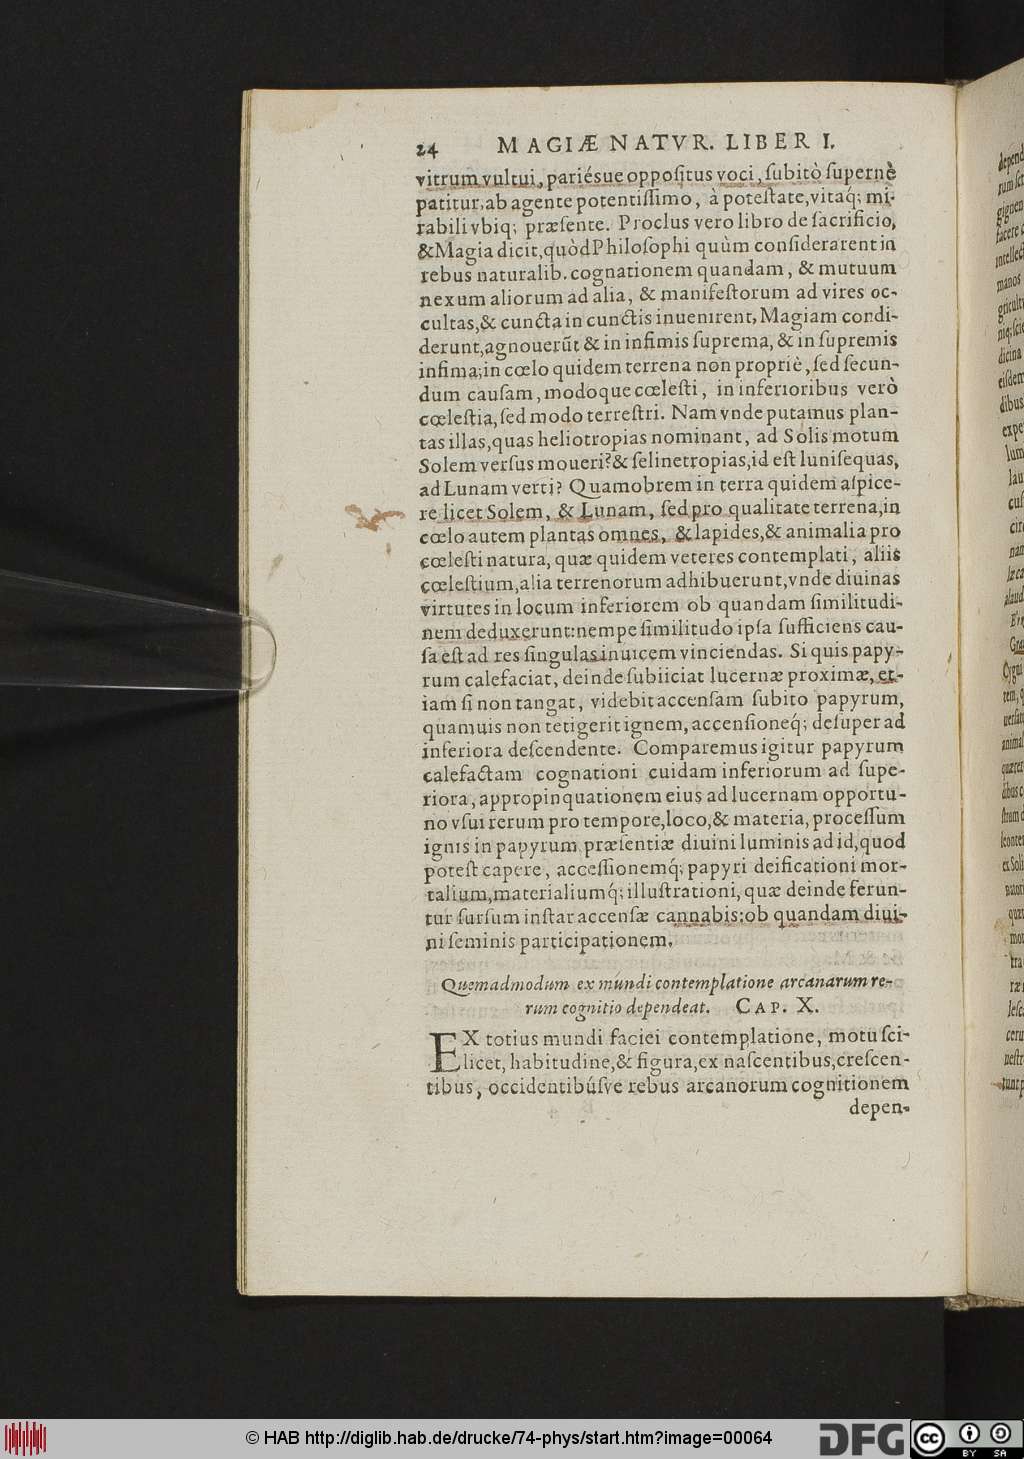 24 MAGIÆ NATVR. LIBER I.
vitrum vultui, pariésue oppoſitus voci, ſubitò ſupernè
patitur, ab agente potentiſſimo, à poteſtate, vitaq́; mi-
rabili vbiq; præſente. Proclus vero libro de ſacrificio,
& Magia dicit, quòd Philoſophi quùm conſiderarent in
rebus naturalib. cognationem quandam, & mutuum
nexum aliorum ad alia, & manifeſtorum ad vires oc-
cultas, & cuncta in cunctis inuenirent, Magiam condi-
derunt, agnouerũt & in infimis ſuprema, & in ſupremis
infima; in cœlo quidem terrena non propriè, ſed ſecun-
dum cauſam, modoque cœleſti, in inferioribus verò
cœleſtia, ſed modo terreſtri. Nam vnde putamus plan-
tas illas, quas heliotropias nominant, ad Solis motum
Solem verſus moueri? & ſelinetropias, id eſt luniſequas,
ad Lunam verti? Quamobrem in terra quidem aſpice-
re licet Solem, & Lunam, ſed pro qualitate terrena, in
cœlo autem plantas omnes, & lapides, & animalia pro
cœleſti natura, quæ quidem veteres contemplati, aliis
cœleſtium, alia terrenorum adhibuerunt, vnde diuinas
virtutes in locum inferiorem ob quandam ſimilitudi-
nem deduxerunt: nempe ſimilitudo ipſa ſufficiens cau-
ſa eſt ad res ſingulas inuicem vinciendas. Si quis papy-
rum calefaciat, deinde ſubiiciat lucernæ proximæ, et-
iam ſi non tangat, videbit accenſam ſubito papyrum,
quamuis non tetigerit ignem, accenſioneq́; deſuper ad
inferiora deſcendente. Comparemus igitur papyrum
calefactam cognationi cuidam inferiorum ad ſupe-
riora, appropinquationem eius ad lucernam opportu-
no vſui rerum pro tempore, loco, & materia, proceſſum
ignis in papyrum præſentiæ diuini luminis ad id, quod
poteſt capere, acceſſionemq́; papyri deificationi mor-
talium, materialiumq́; illuſtrationi, quæ deinde ferun-
tur ſurſum inſtar accenſæ cannabis: ob quandam diui-
ni ſeminis participationem.
Quemadmodum ex mundi contemplatione arcanarum re-
rum cognitio dependeat. CAP. X.
EX totius mundi faciei contemplatione, motu ſci-
licet, habitudine, & figura, ex naſcentibus, creſcen-
tibus, occidentibúſve rebus arcanorum cognitionem
depen-
© HAB http://diglib.hab.de/drucke/74-phys/start.htm?image=00064
DFG
CC BY SA